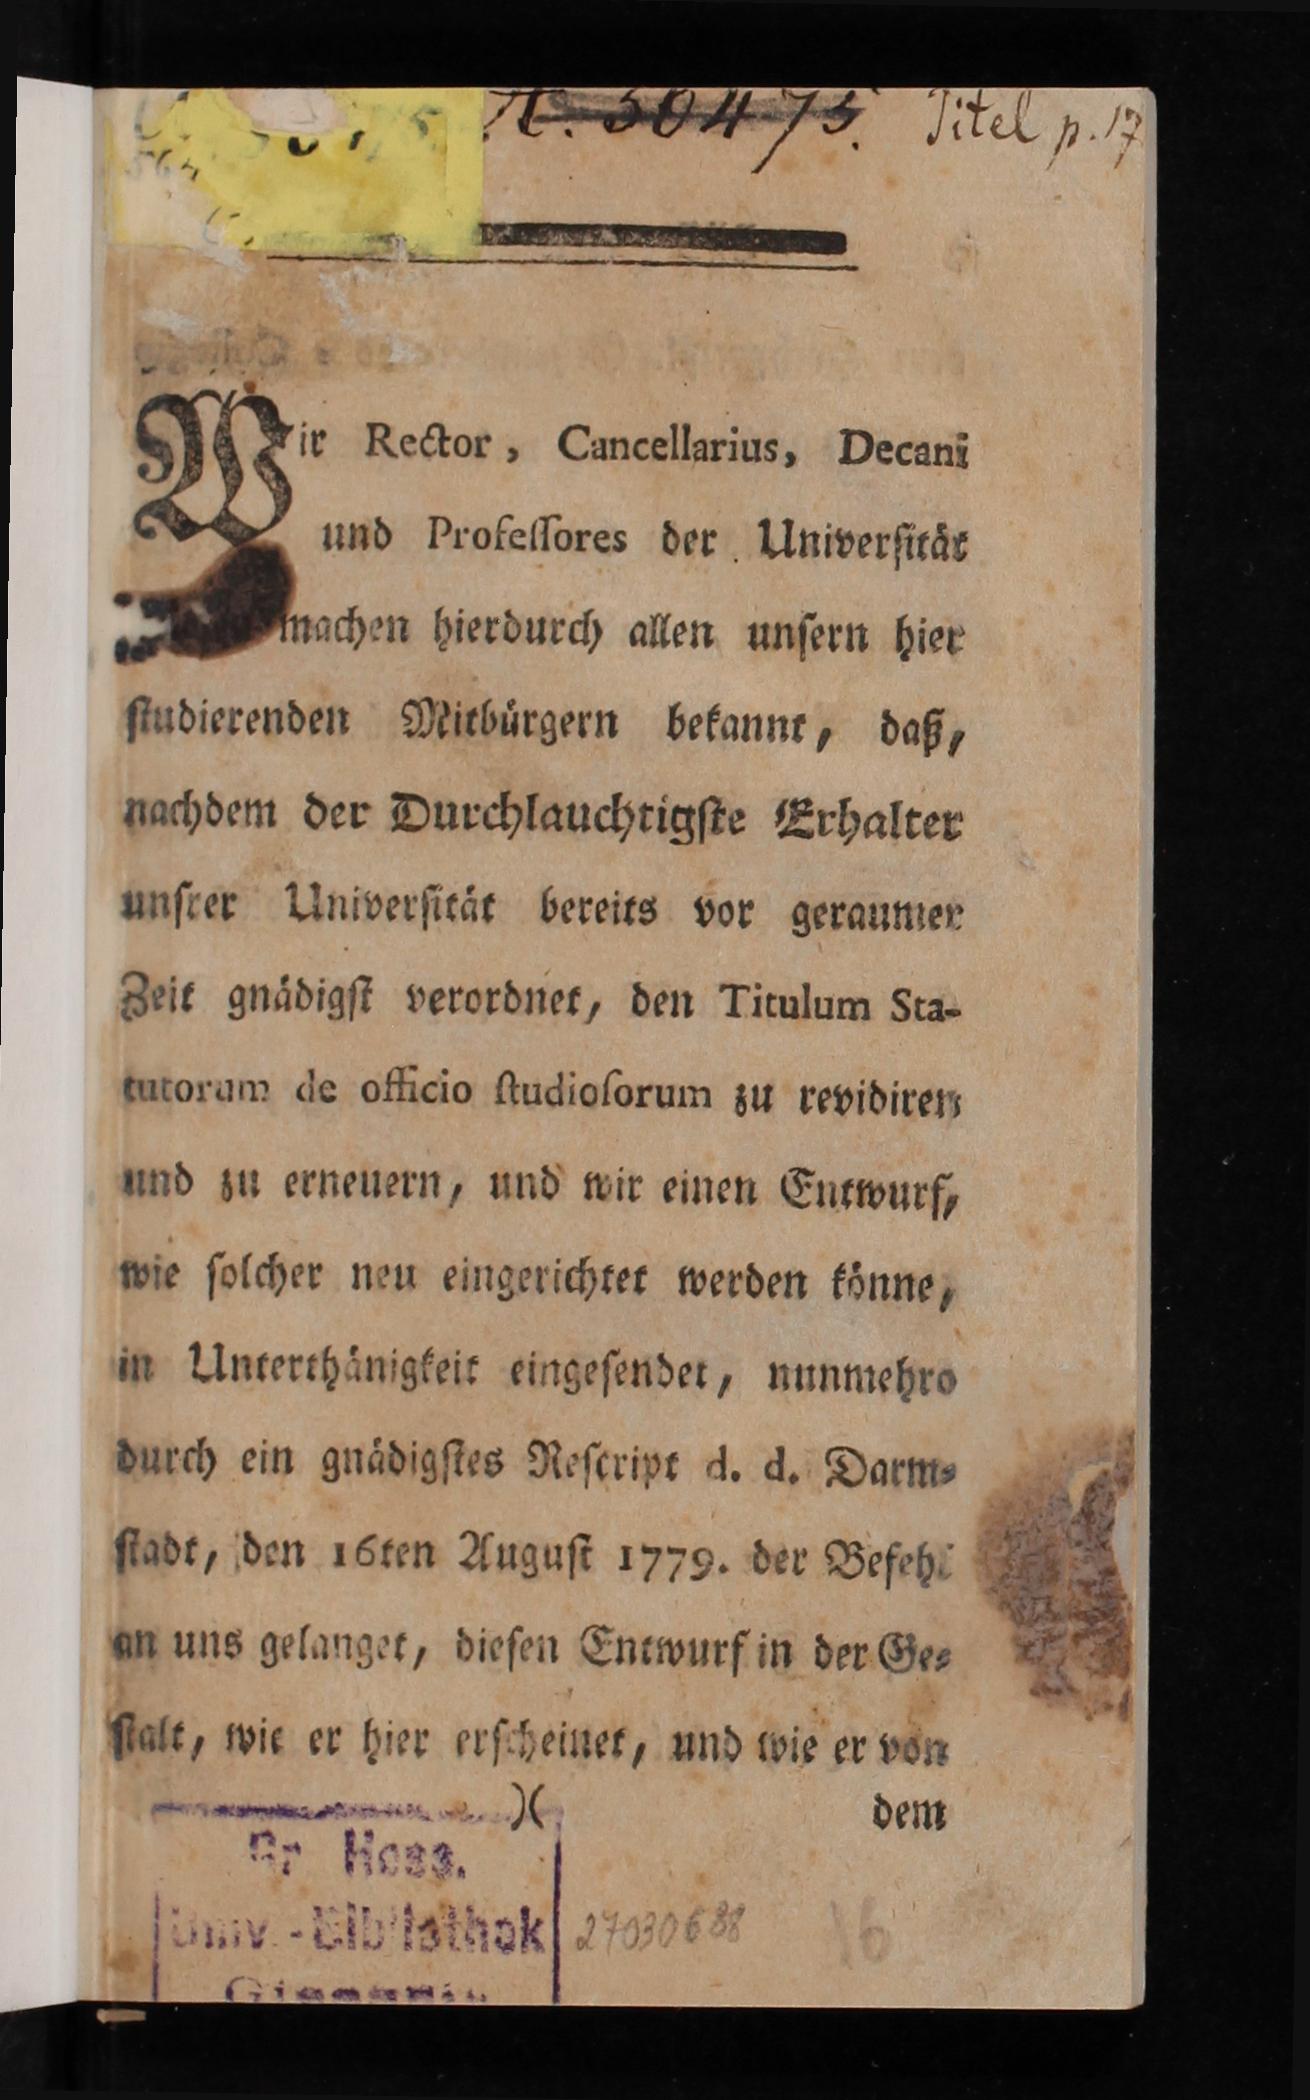 A. 30475. Titel p. 17
Wir Rector, Cancellarius, Decani
und Professores der Universität
machen hierdurch allen unsern hier
studierenden Mitbürgern bekannt, daß,
nachdem der Durchlauchtigste Erhalter
unsrer Universität bereits vor geraumer
Zeit gnädigst verordnet, den Titulum Sta-
tutorum de officio studiosorum zu revidiren
und zu erneuern, und wir einen Entwurf,
wie solcher neu eingerichtet werden könne,
in Unterthänigkeit eingesendet, nunmehro
durch ein gnädigstes Rescript d. d. Darm-
stadt, den 16ten August 1779. der Befehl
an uns gelanget, diesen Entwurf in der Ge-
stalt, wie er hier erscheinet, und wie er von
)( dem
Gr. Hess.
Univ.-Bibliothek 27030688